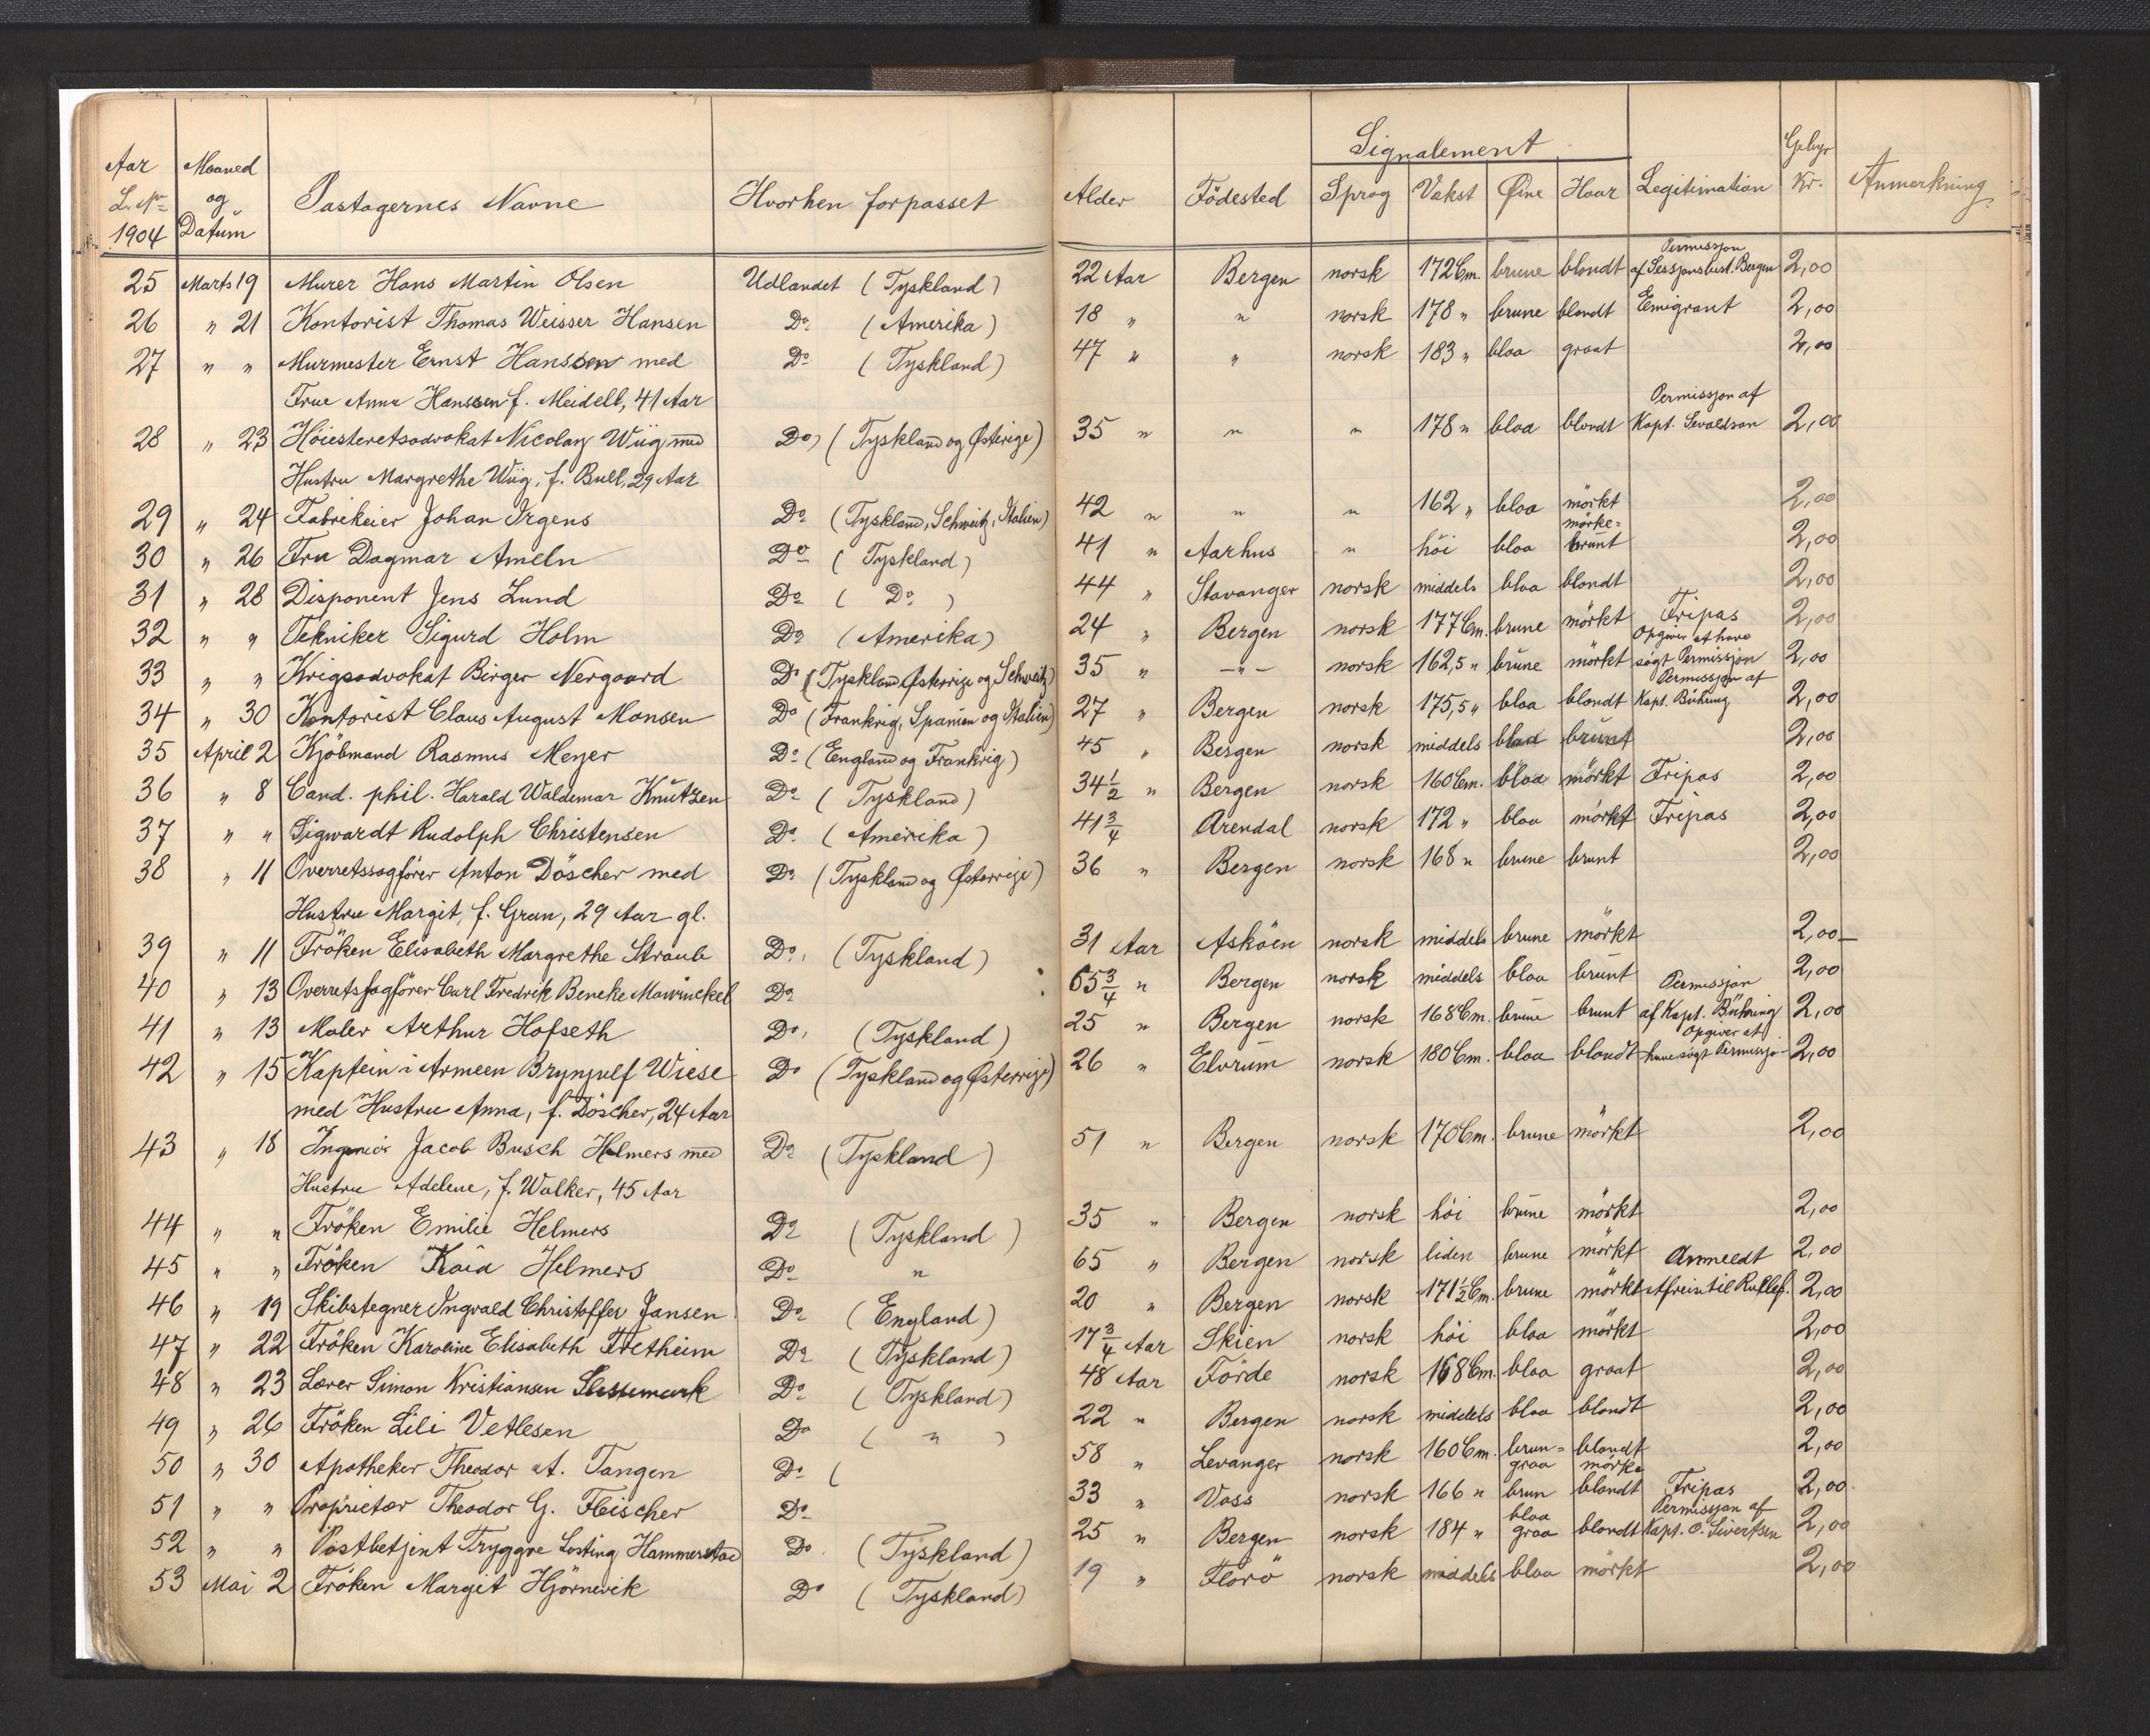 Signalement
Aar Maaned Gebyr
L. No og Pastagernes Navne Hvorhen forpasset Alder Födested Sprog Vækst Øine Haar Legitimation Kr. Anmerkning
1904 Datum
Permissjon
25 Marts 19 Murer Hans Martin Olsen Udlandet (Tyskland) 22 Aar Bergen norsk 172 Cm. brune blondt af Sessjonsbest. Bergen 2,00
26 " 21 Kontorist Thomas Weisser Hansen Do (Amerika) 18 " " norsk 178 " brune blondt Emigrant 2,00
27 " " Murmester Ernst Hanssen med Do (Tyskland) 47 " " norsk 183 " blaa graat 2,00
Frue Anna Hanssen f. Meidell, 41 Aar
Permissjon af
28 " 23 Höiesteretsadvokat Nicolay Wiig med Do, (Tyskland og Østerige) 35 " " " 178 " blaa blondt Kapt. Sevaldson 2,00
Hustru Margrethe Wiig, f. Bull, 29 Aar
29 " 24 Fabrikeier Johan Irgens Do (Tyskland, Schweitz, Italien) 42 " " " 162 " blaa mörkt 2,00
mörke=
30 " 26 Fru Dagmar Ameln Do (Tyskland) 41 " Aarhus " höi blaa brunt 2,00
31 " 28 Disponent Jens Lund Do (Do) 44 " Stavanger norsk middels blaa blondt 2,00
32 " " Tekniker Sigurd Holm Do (Amerika) 24 " Bergen norsk 177 Cm. brune mörkt Fripas 2,00
Opgiver at have
33 " " Krigsadvokat Birger Nergaard Do (Tyskland, Østerrige og Schweitz) 35 " -"- norsk 162,5 " brune mörkt sögt Permissjon 2,00
Permissjon af
34 " 30 Kontorist Claus August Monsen Do (Frankrig, Spanien og Italien) 27 " Bergen norsk 175,5 " blaa blondt Kapt. Bühring 2,00
35 April 2 Kjöbmand Rasmus Meyer Do (England og Frankrig) 45 " Bergen norsk middels blaa brunt 2,00
36 " 8 Cand. phil. Harald Waldemar Knutzen Do (Tyskland) 34 1/2 " Bergen norsk 160 Cm. blaa mörkt Fripas 2,00
37 " " Sigwardt Rudolph Christensen Do. (Amerika) 41 3/4 Arendal norsk 172 " blaa mörkt Fripas 2,00
38 " 11 Overretssagförer Anton Döscher med Do (Tyskland og Østerrige) 36 " Bergen norsk 168 " brune brunt 2,00
Hustru Margit, f. Gran, 29 Aar gl.
39 " 11 Fröken Elisabeth Margrethe Straub Do, (Tyskland) 31 Aar Asköen norsk middels brune mörkt 2,00
40 " 13 Overretssagförer Carl Fredrik Beneke Mowinckel Do 65 3/4 " Bergen norsk middels blaa brunt 2,00
Permissjon
41 " 13 Maler Arthur Hofseth Do, (Tyskland) 25 " Bergen norsk 168 Cm. brune brunt af Kapt. Bühring 2,00
Opgiver at
42 " 15 Kaptein i Armeen Brynjulf Wiese Do (Tyskland og Østerrige) 26 " Elvrum norsk 180 Cm. blaa blondt have sögt Permissjo- 2,00
med Hustru Anna, f. Döscher, 24 Aar
43 " 18 Ingeniör Jacob Busch Helmers med Do (Tyskland) 51 " Bergen norsk 170 Cm. brune mörkt 2,00
Hustru Adelene, f. Walker, 45 Aar
44 " " Fröken Emilie Helmers Do (Tyskland) 35 " Bergen norsk höi brune mörkt 2,00
45 " " Fröken Kaia Helmers Do " 65 " Bergen norsk liden brune mörkt 2,00
Anmeldt
46 " 19 Skibstegner Ingvald Christoffer Jansen Do (England) 20 " Bergen norsk 171 1/2 Cm. brune mörkt Afreise til Rullef. 2,00
47 " 22 Fröken Karoline Elisabeth Fretheim Do (Tyskland) 17 3/4 Aar Skien norsk höi blaa mörkt 2,00
48 " 23 Lærer Simon Kristiansen Do (Tyskland) 48 Aar Förde norsk 168 Cm. blaa graat 2,00
49 " 26 Fröken Lili Vetlesen Do (") 22 " Bergen norsk middels blaa blondt 2,00
50 " 30 Apotheker Theodor A. Tangen Do ( 58 " Levanger norsk 160 Cm. brun= blondt 2,00
graa mörke
51 " " Proprietær Theodor G. Fleischer Do 33 " Voss norsk 166 " brun blondt Fripas 2,00
blaa Permissjon af
52 " " Postbetjent Tryggve Losting Hammerstad Do. (Tyskland) 25 " Bergen norsk 184 " graa blondt Kapt. O. Sivertsen 2,00
53 Mai 2 Fröken Margit Hjörnevik Do (Tyskland) 19 " Florö norsk middels blaa mörkt 2,00